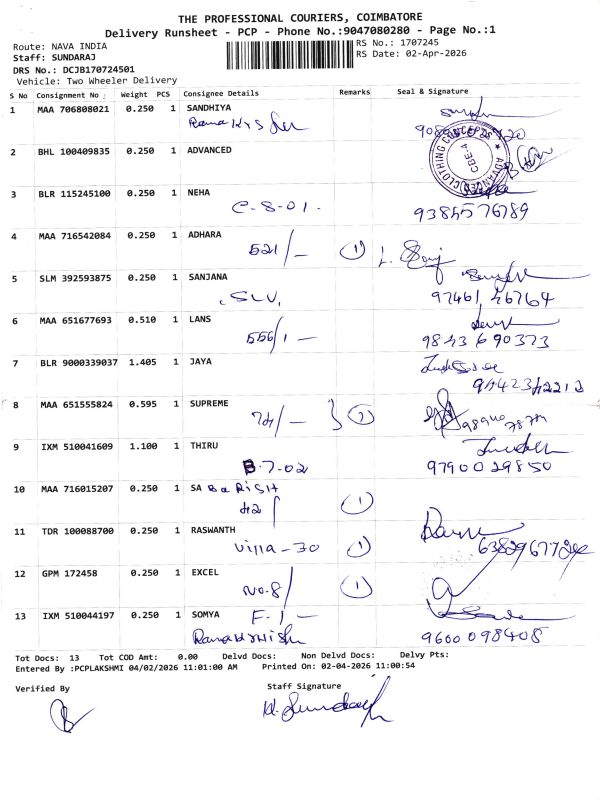 THE PROFESSIONAL COURIERS, COIMBATORE
Delivery Runsheet - PCP - Phone No.:9047080280 - Page No.:1
Route: NAVA INDIA
RS No.: 1707245
Staff: SUNDARAJ
RS Date: 02-Apr-2026
DRS No.: DCJB170724501
Vehicle: Two Wheeler Delivery
S No Consignment No Weight PCS Consignee Details Remarks Seal & Signature
1 MAA 706808021 0.250 1 SANDHIYA
2 BHL 100409835 0.250 1 ADVANCED
CLOTHING CONCEPTS ADVANCED
CBE-4
3 BLR 115245100 0.250 1 NEHA
C-8-01. 9384576789
4 MAA 716542084 0.250 1 ADHARA
521/- 1
5 SLM 392593875 0.250 1 SANJANA
SLV, 97461 46764
6 MAA 651677693 0.510 1 LANS
556/1- 9843690373
7 BLR 9000339037 1.405 1 JAYA
8 MAA 651555824 0.595 1 SUPREME
74/-
9 IXM 510041609 1.100 1 THIRU
B-7-02 9790029850
10 MAA 716015207 0.250 1 SABARISH
42 1
11 TDR 100088700 0.250 1 RASWANTH
Villa-30 1
12 GPM 172458 0.250 1 EXCEL
NO.8/ 1
13 IXM 510044197 0.250 1 SOMYA F-1-
9660098408
Tot Docs: 13 Tot COD Amt: 0.00 Delvd Docs: Non Delvd Docs: Delvy Pts:
Entered By :PCPLAKSHMI 04/02/2026 11:01:00 AM Printed On: 02-04-2026 11:00:54
Verified By Staff Signature